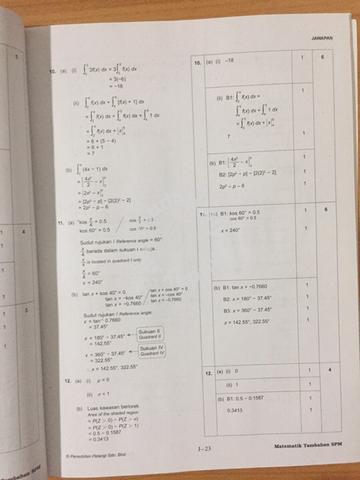 JAWAPAN
10. (a) (i) ∫ 3f(x) dx = 3∫ f(x) dx
= 3(–6)
= –18
(ii) ∫ f(x) dx + ∫ [f(x) + 1] dx
= ∫ f(x) dx + ∫ f(x) dx + ∫ 1 dx
= ∫ f(x) dx + [x]
= 6 + (5 – 4)
= 6 + 1
= 7
(b) ∫ (4x – 1) dx
= [4x²/2 – x]
= [2x² – x]
= [2p² – p] – [2(2)² – 2]
= 2p² – p – 6
11. (a) kos x/4 = 0.5
kos 60° = 0.5
Sudut rujukan / Reference angle = 60°
x/4 berada dalam sukuan I
x/4 is located in quadrant I only
x/4 = 60°
x = 240°
(b) tan x + kos 40° = 0
tan x = –kos 40°
tan x = –0.7660
tan x + cos 40° = 0
tan x = –cos 40°
tan x = –0.7660
Sudut rujukan / Reference angle
x = tan⁻¹ 0.7660
= 37.45°
x = 180° – 37.45°
= 142.55°
Sukuan II
Quadrant II
x = 360° – 37.45°
= 322.55°
Sukuan IV
Quadrant IV
∴ x = 142.55°, 322.55°
12. (a) (i) μ = 0
(ii) σ = 1
(b) Luas kawasan berlorek
Area of the shaded region
= P(Z > 0) – P(Z > 1)
= 0.5 – 0.1587
= 0.3413
10. (a) (i) –18 1 6
(ii) B1: ∫ f(x) dx +
∫ f(x) dx + ∫ 1 dx
= ∫ f(x) dx + [x] 1
7 1
(b) B1: [4x²/2 – x] 1
B2: [2p² – p] – [2(2)² – 2] 1
2p² – p – 6 1
11. B1: kos 60° = 0.5 1 6
cos 60° = 0.5
x = 240° 1
(b) B1: tan x = –0.7660 1
B2: x = 180° – 37.45° 1
B3: x = 360° – 37.45° 1
x = 142.55°, 322.55° 1
12. (a) (i) 0 1 4
(ii) 1 1
(b) B1: 0.5 – 0.1587 1
0.3413 1
© Penerbitan Pelangi Sdn. Bhd.
J-23
Matematik Tambahan SPM